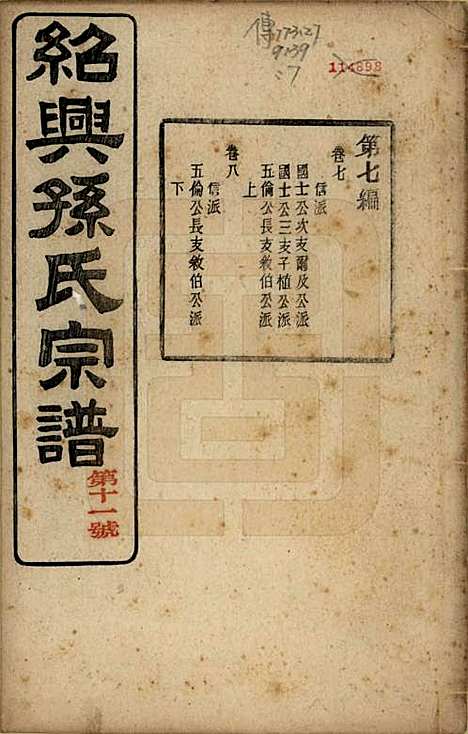 紹興孫氏宗譜
第十一號
傳173127
9139
:7
114898
第七編
卷七
信派
國士公次支爾及公派
國士公三支子植公派
五倫公長支敘伯公派
上
卷八
信派
五倫公長支敘伯公派
下